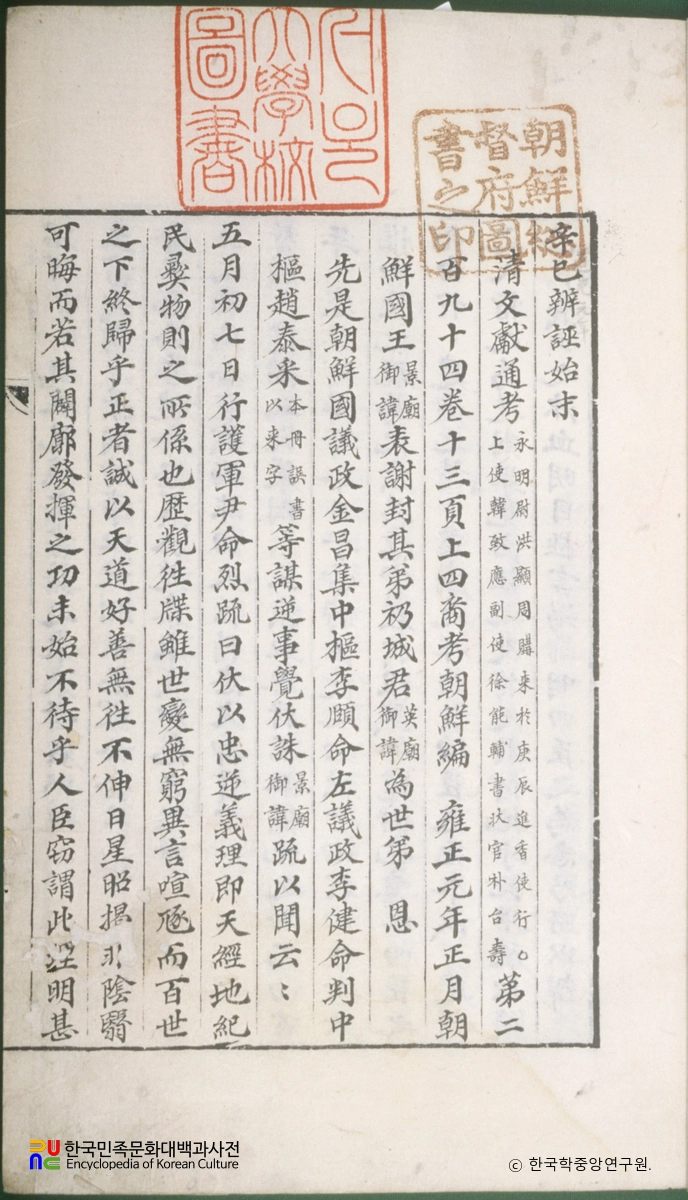 辛巳辨誣始末
清文獻通考 永明尉洪顯周購來於庚辰進香使行○上使韓致應副使徐能輔書狀官朴台壽 第二
百九十四卷十三頁上四裔考朝鮮編 雍正元年正月朝
鮮國王 景廟御諱 表謝封其弟礽城君 英廟御諱 為世弟 恩
先是朝鮮國議政金昌集中樞李頤命左議政李健命判中
樞趙泰采 本冊誤書以来字 等謀逆事覺伏誅 景廟御諱 疏以聞云〻
五月初七日行護軍尹命烈疏曰伏以忠逆義理即天經地紀
民彝物則之所係也歷觀徃牒雖世變無窮異言喧豗而百世
之下終歸乎正者誠以天道好善無徃不伸日星昭揭 陰翳
可晦而若其闡廓發揮之功未始不待乎人臣窃謂此 明甚
朝鮮總
督府圖
書之印
大學校
圖書
한국민족문화대백과사전
Encyclopedia of Korean Culture
© 한국학중앙연구원.